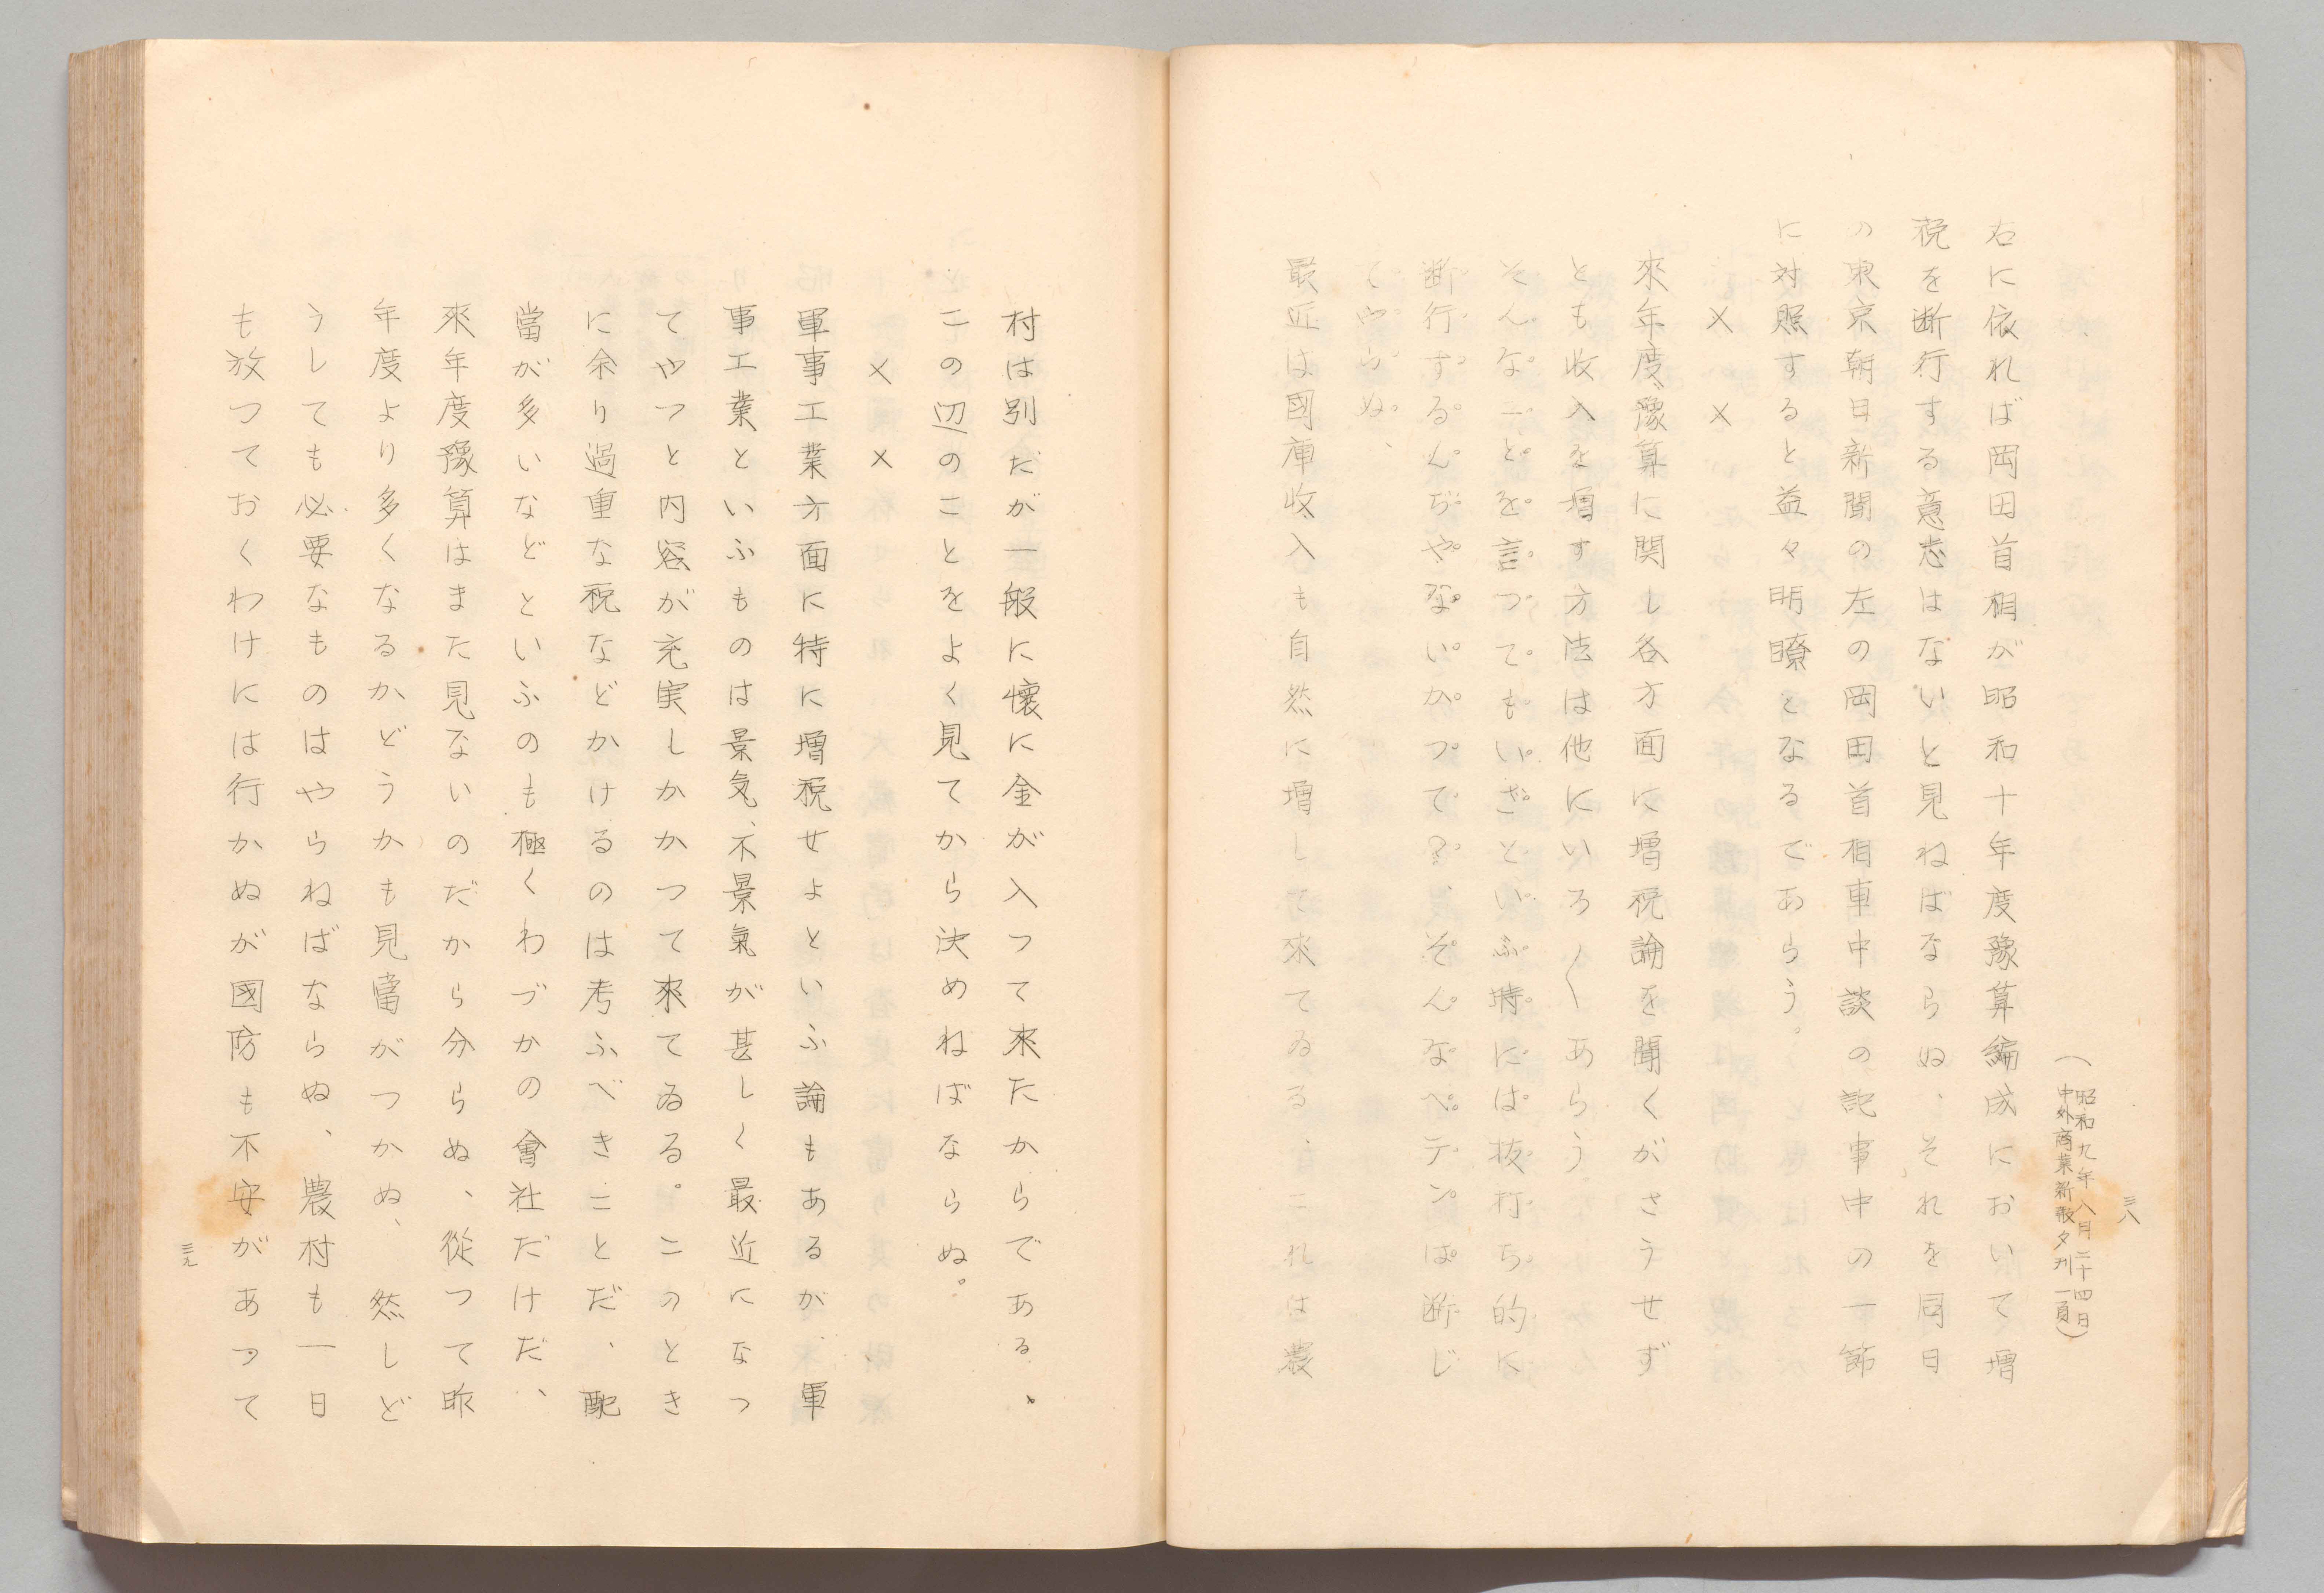 三八
（昭和九年八月二十四日
中外商業新報夕刊一頁）
右に依れば岡田首相が昭和十年度豫算編成において増
税を断行する意志はないと見ねばならぬ、それを同日
の東京朝日新聞の左の岡田首相車中談の記事中の一節
に対照すると益々明瞭となるであらう。
× ×
來年度豫算に関し各方面に増税論を聞くがさうせず
とも收入を増す方法は他にいろ〱あらう
そんなことを言つてもいざといふ時には抜打ち的に
断行するんぢやないかつて？、そんなペテンは断じ
てやらぬ、
最近は國庫收入も自然に増して來てゐる、これは農
村は別だが一般に懷に金が入つて來たからである、
この辺のことをよく見てから決めねばならぬ。
× ×
軍事工業方面に特に増税せよといふ論もあるが、軍
事工業といふものは景気、不景氣が甚しく最近になつ
てやつと内容が充実しかかつて來てゐる。このとき
に余り過重な税などかけるのは考ふべきことだ、配
當が多いなどといふのも極くわづかの會社だけだ、
來年度豫算はまた見ないのだから分らぬ、從つて昨
年度より多くなるかどうかも見當がつかぬ、然しど
うしても必要なものはやらねばならぬ、農村も一日
も放つておくわけには行かぬが國防も不安があつて
三九